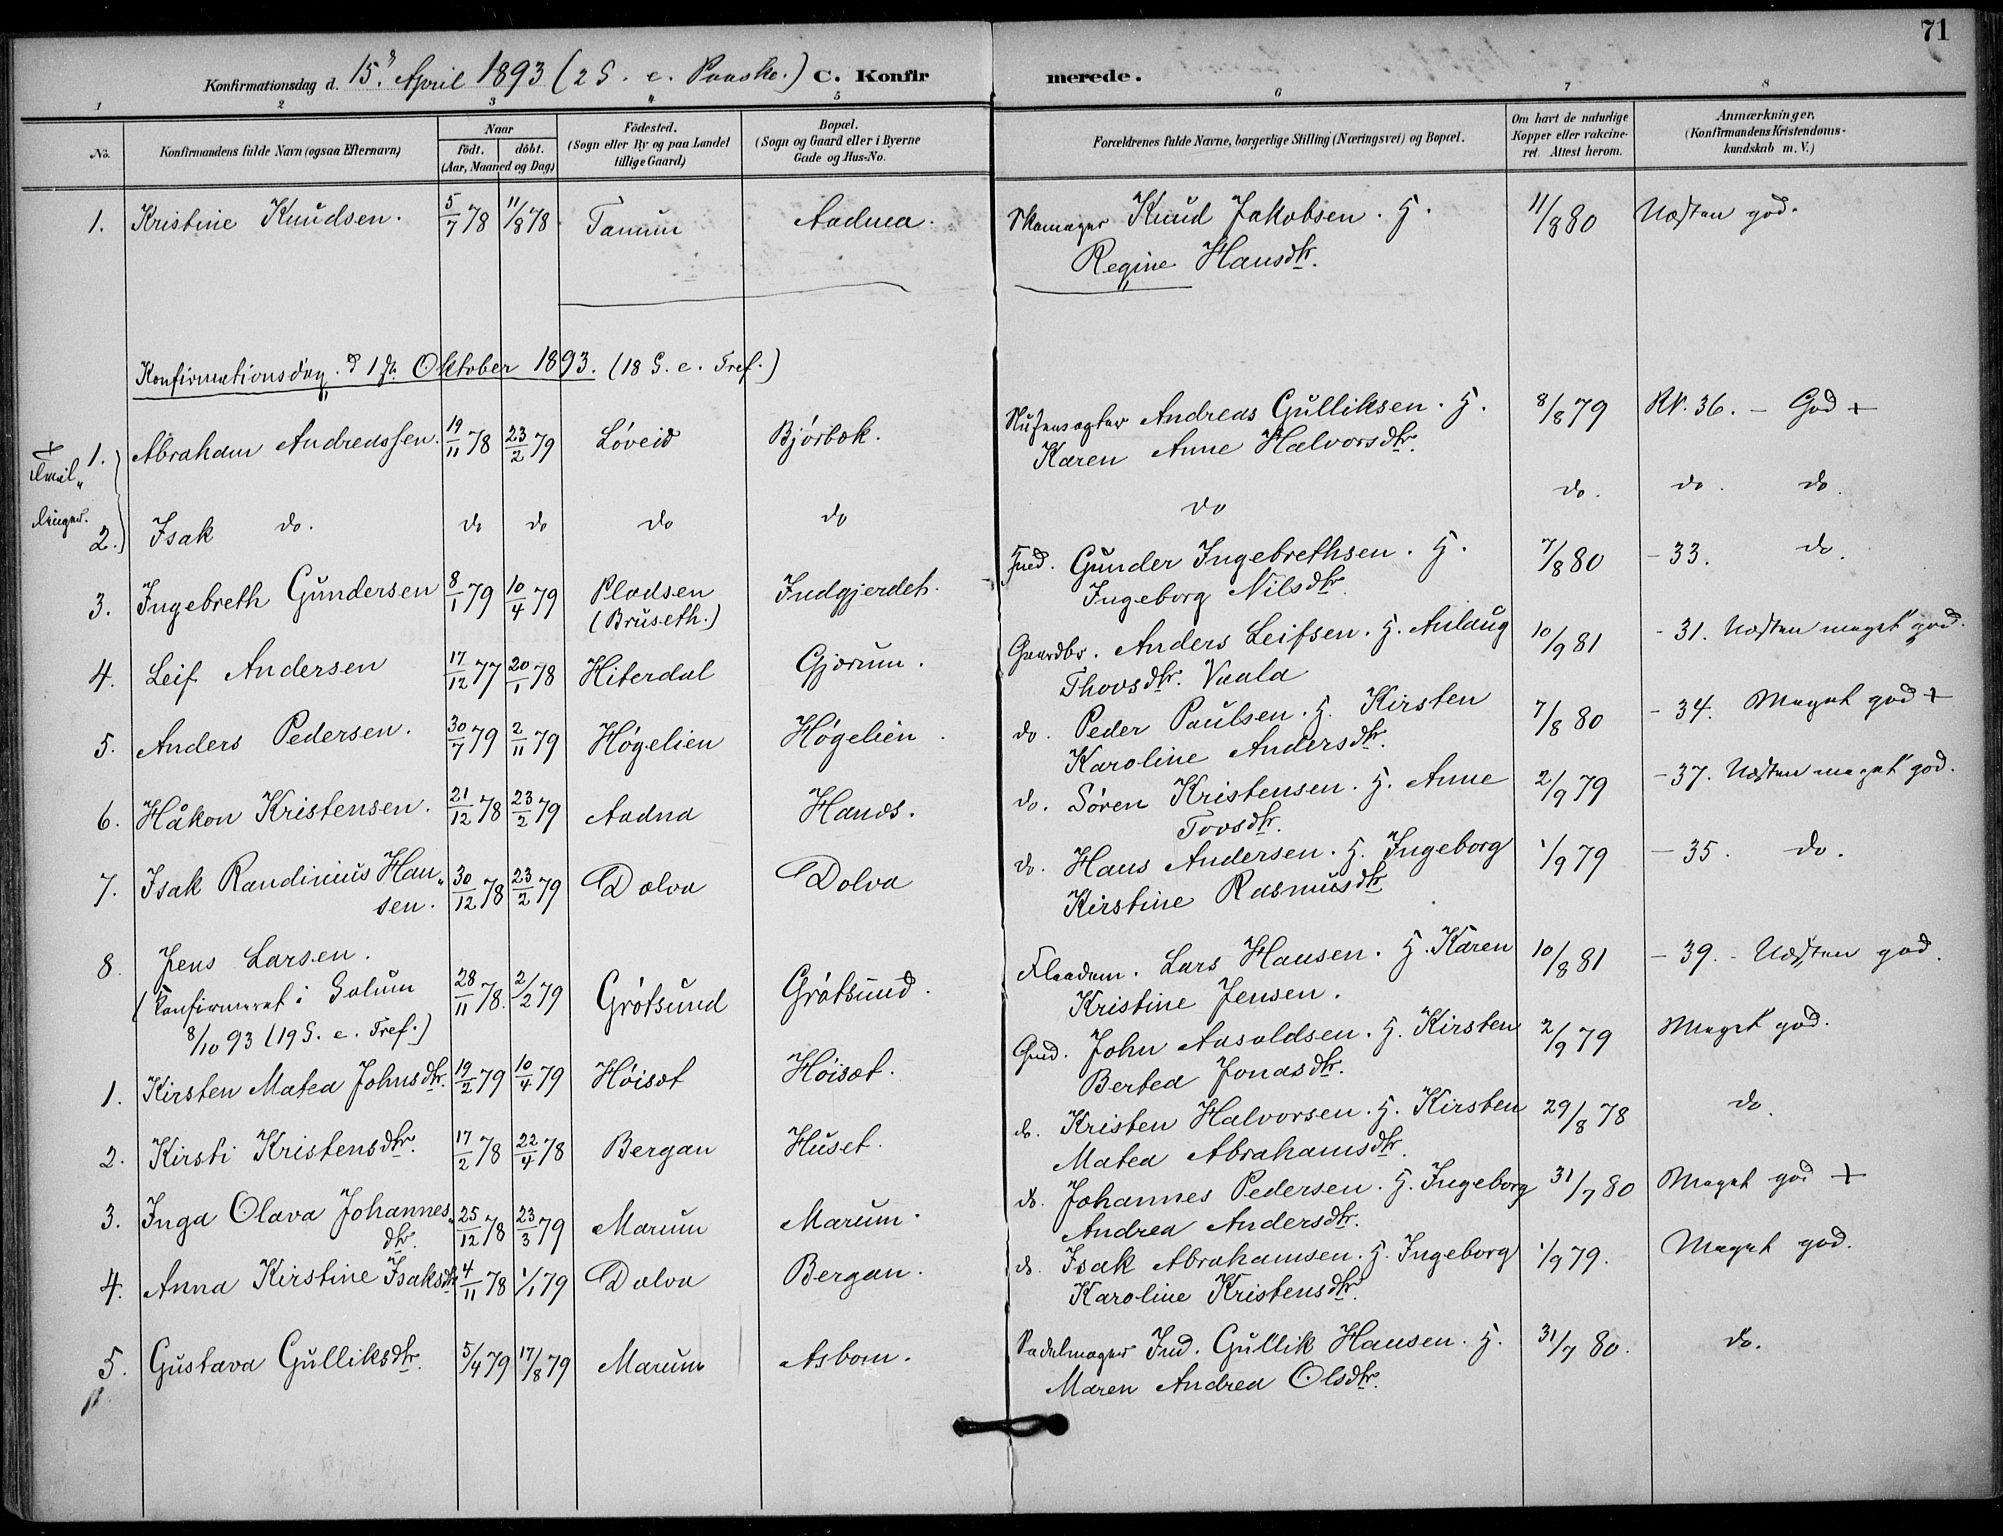 71
Konfirmationsdag d. 15d April 1893 (2 S. e. Paaske.) C. Konfirmerede.
1 2 3 4 5 6 7 8
No.
Konfirmandens fulde Navn (ogsaa Efternavn)
Naar
födt. döbt.
(Aar, Maaned og Dag)
Födested.
(Sogn eller By og paa Landet
tillige Gaard)
Bopæl.
(Sogn og Gaard eller i Byerne
Gade og Hus-No.
Forældrenes fulde Navne, borgerlige Stilling (Næringsvei) og Bopæl.
Om havt de naturlige
Kopper eller vakcine-
ret. Attest herom.
Anmærkninger.
(Konfirmandens Kristendoms-
kundskab m. V.)
1. Kristine Knudsen. 5/7 78 11/8 78 Tanum Aadnea. Skomager Knud Jakobsen. H. 11/8 80 Næsten god.
Regine Hansdtr.
Konfirmationsdag. d 1ste Oktober 1893. (18 S. e. Tref.)
+ Tvil„
1. Abraham Andreassen. 19/11 78 23/2 79 Løveid Bjørbæk. Andreas Gulliksen. H. 8/8 79 RN. 36. – God +
Karen Anne Halvorsdtr.
linger.
2. Isak do. do do do do do do. do. do.
3. Ingebreth Gundersen 8/1 79 10/4 79 Pladsen Indgjerdet. Ind. Gunder Ingebrethsen. H. 7/8 80 – 33. do.
(Bruseth.) Ingeborg Nilsdtr.
4. Leif Andersen 17/12 77 20/1 78 Hiterdal Gjærum. Gaardbr. Anders Leifsen. H. Anlaug 10/9 81 – 31. Næsten meget god.
Thovsdtr. Vaala
5. Anders Pedersen. 30/7 79 2/11 79 Høgelien Høgelien. do. Peder Paulsen. H. Kirsten 7/8 80 – 34. Meget god +
Karoline Andersdtr.
6. Håkon Kristensen. 21/12 78 23/2 79 Aadna Hanås. do. Sören Kristensen. H. Anne 2/9 79 – 37. Næsten meget god.
Tovsdtr.
7. Isak Randinius Han„ 30/12 78 23/2 79 Dolva Dolva do. Hans Andersen. H. Ingeborg 1/9 79 – 35. do.
sen. Kirstine Rasmusdtr
8. Jens Larsen. 28/11 78. 2/2 79 Grótsund Grótsund. Flaadem. Lars Hansen. H. Karen 10/8 81 – 39. – Næsten god.
(Konfirmeret i Solum Kristine Jensen.
8/10 93 (19 S. e. Tref.)
1. Kirsten Matea Johnsdtr. 19/2 79 10/4 79 Høisæt Høisæt. Gmd. John Aasoldsen. H. Kirsten 2/9 79 Meget god.
Bertea Jonasdtr.
2. Kirsti Kristensdtr. 17/2 78 22/4 78 Bergan Huset. do. Kristen Halvorsen. H. Kirsten 29/8 78 do.
Matea Abrahamsdtr.
3. Inga Olava Johannes„ 25/12 78 23/3 79 Marum Marum. do. Johannes Pedersen. H. Ingeborg 31/7 80 Meget god +
dtr. Andrea Andersdtr.
4. Anna Kirstine Isaksdtr 4/11 78 1/1 79 Dolva Bergan. do. Isak Abrahamsen. H. Ingeborg 1/9 79. Meget god.
Karoline Kristensdtr.
5. Gustava Gulliksdtr. 5/4 79 17/8 79 Marum Asbom. Sadelmager Ind. Gullik Hansen. H. 31/7 80. do.
Maren Andrea Olsdtr.